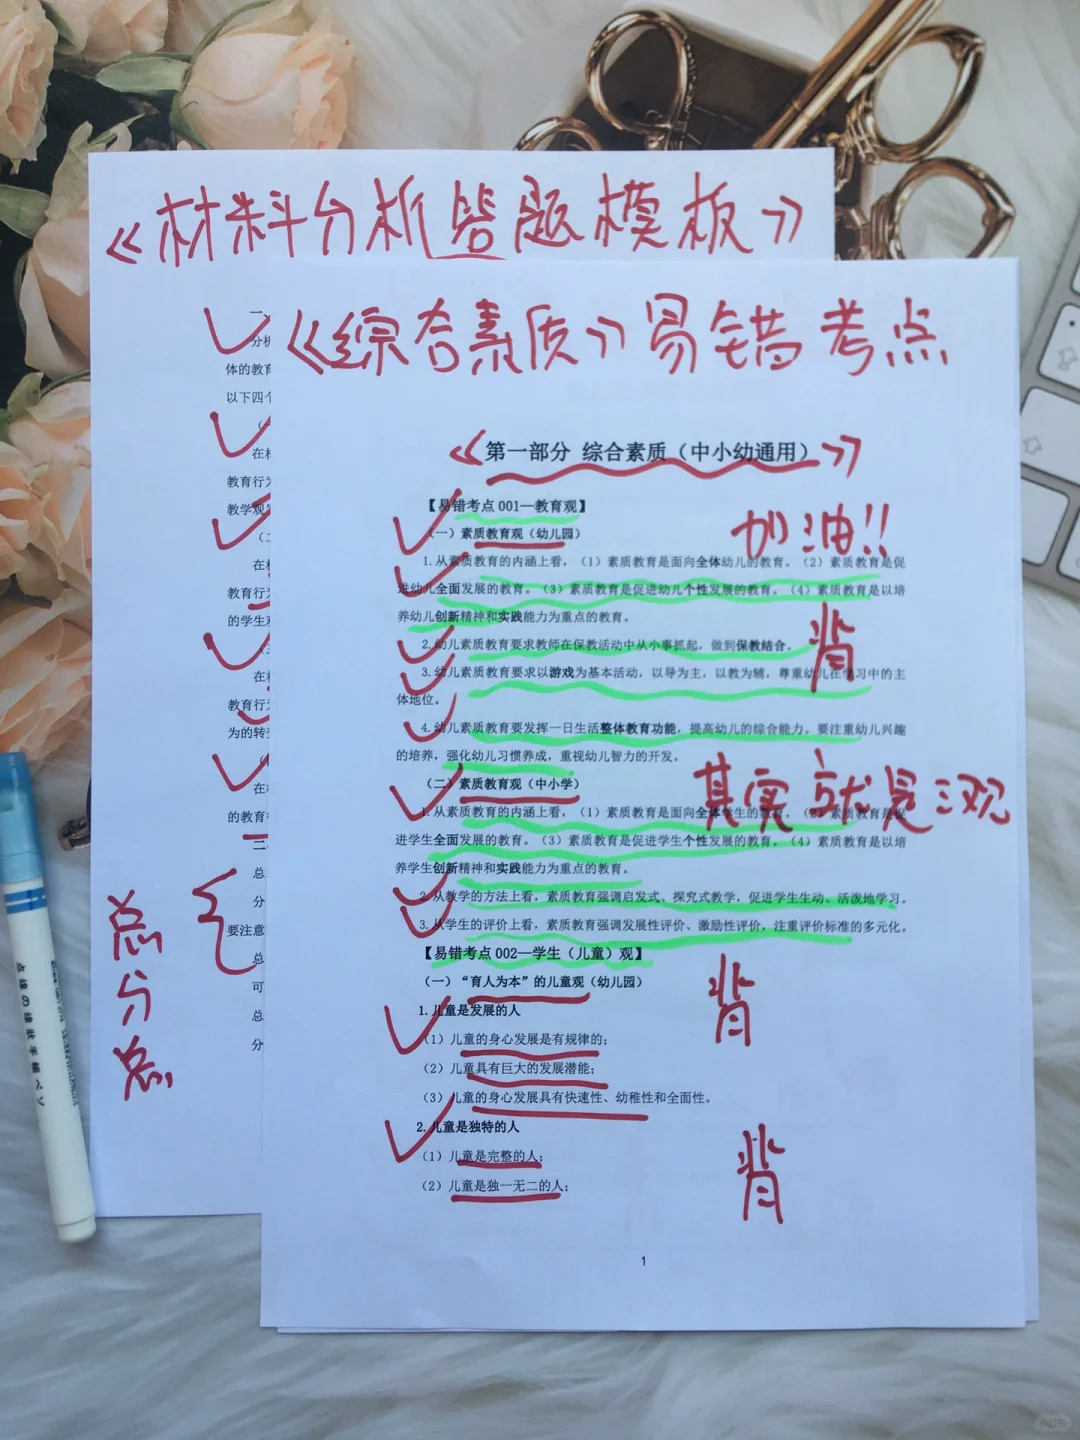 《材料分析答题模板》
《综合素质》易错考点
一、
分析
体的教育
以下四个
在材
教育行为
教学观
在材
教育行为
的学生观
在材
教育行为
为的转变
在材
的教育
二
总
分
要注意
总
可
总
分
点
分
点
《第一部分 综合素质（中小幼通用）》
【易错考点 001—教育观】
加油!!
（一）素质教育观（幼儿园）
1.从素质教育的内涵上看，（1）素质教育是面向全体幼儿的教育。（2）素质教育是促
进幼儿全面发展的教育。（3）素质教育是促进幼儿个性发展的教育。（4）素质教育是以培
养幼儿创新精神和实践能力为重点的教育。
背
2.幼儿素质教育要求教师在保教活动中从小事抓起，做到保教结合。
3.幼儿素质教育要求以游戏为基本活动，以导为主，以教为辅，尊重幼儿在学习中的主
体地位。
4.幼儿素质教育要发挥一日生活整体教育功能，提高幼儿的综合能力。要注重幼儿兴趣
的培养，强化幼儿习惯养成，重视幼儿智力的开发。
（二）素质教育观（中小学）
其实就是汉观
1.从素质教育的内涵上看，（1）素质教育是面向全体学生的教育。（2）素质教育是促
进学生全面发展的教育。（3）素质教育是促进学生个性发展的教育。（4）素质教育是以培
养学生创新精神和实践能力为重点的教育。
2.从教学的方法上看，素质教育强调启发式、探究式教学，促进学生生动、活泼地学习。
3.从学生的评价上看，素质教育强调发展性评价、激励性评价，注重评价标准的多元化。
【易错考点 002—学生（儿童）观】
（一）“育人为本”的儿童观（幼儿园）
背
1.儿童是发展的人
（1）儿童的身心发展是有规律的；
（2）儿童具有巨大的发展潜能；
（3）儿童的身心发展具有快速性、幼稚性和全面性。
2.儿童是独特的人
（1）儿童是完整的人；
背
（2）儿童是独一无二的人；
1
小红书